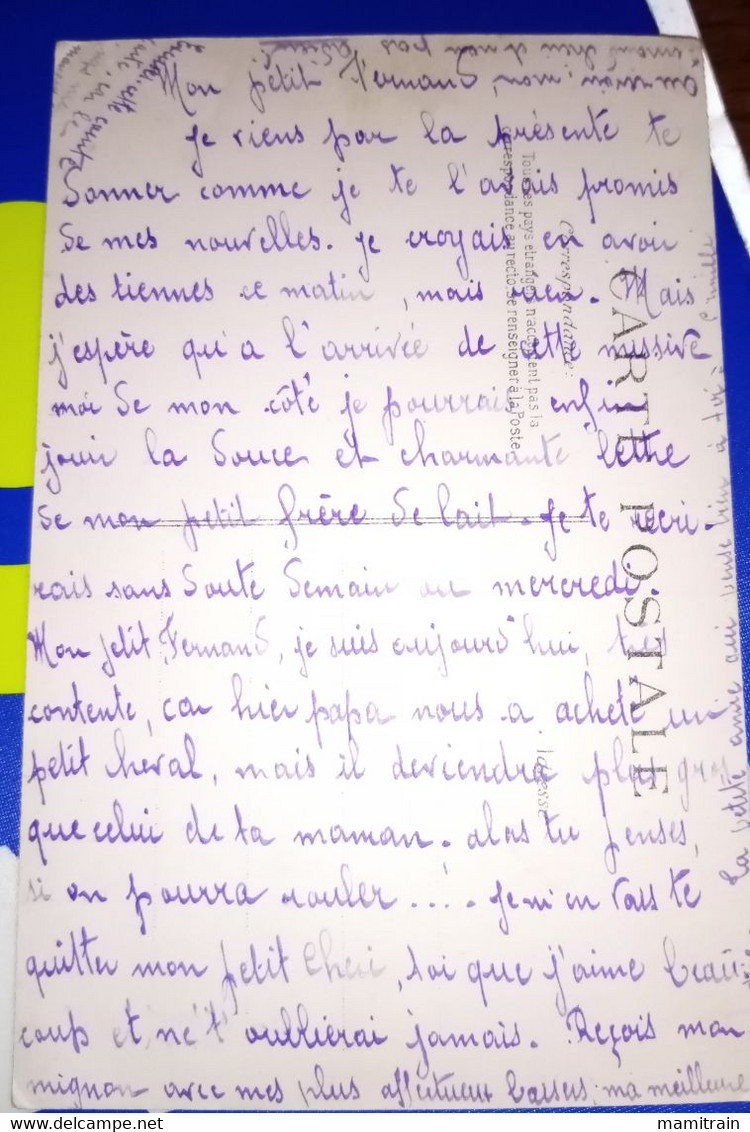 Mon petit Fernand,
Je viens par la présente te
donner comme je te l'avais promis
de mes nouvelles. Je croyais en avoir
des tiennes ce matin, mais rien. Mais
j'espère qu'a l'arrivée de cette missive
moi de mon côté je pourrais enfin
jouir la douce et charmante lettre
de mon petit frère de lait. Je te récri-
rais sans doute demain ou mercredi.
Mon petit Fernand, je suis aujourd'hui, très
contente, car hier papa nous a acheté un
petit cheval, mais il deviendra plus gros
que celui de ta maman. alors tu penses,
si on pourra rouler..... Je m'en vais te
quitter mon petit Cheri, toi que j'aime beau-
coup et ne t'oublierai jamais. Reçois mon
mignon avec mes plus affectueux baisers, ma meilleure
La petite amie qui pense bien à toi
CARTE POSTALE
Correspondance:
Tous les pays étrangers n'acceptent pas la
correspondance au recto. Se renseigner à la Poste
Adresse
mamitrain